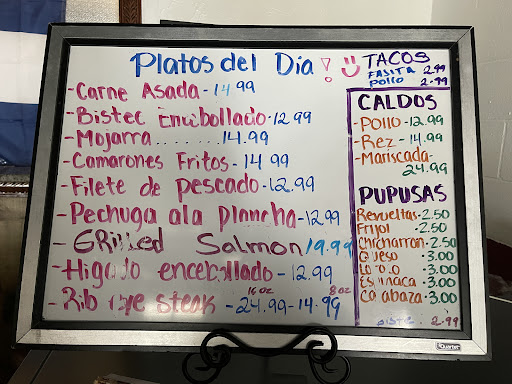 Platos del Dia!
- Carne Asada - 14.99
- Bistec Encebollado - 12.99
- Mojarra.........14.99
- Camarones Fritos - 14.99
- Filete de pescado - 12.99
- Pechuga ala plancha - 12.99
- GRilled Salmon 19.99
- Higado encebollado - 12.99
- Rib eye steak - 16 oz 24.99 - 8 oz 14.99
TACOS
FAJITA 2.99
POLLO 2.99
CALDOS
- Pollo - 12.99
- Rez - 14.99
- Mariscada - 24.99
PUPUSAS
Revueltas - 2.50
Frijol - 2.50
Chicharron - 2.50
Queso - 3.00
3.00
Espinaca - 3.00
Calabaza - 3.00
2.99
Quartet